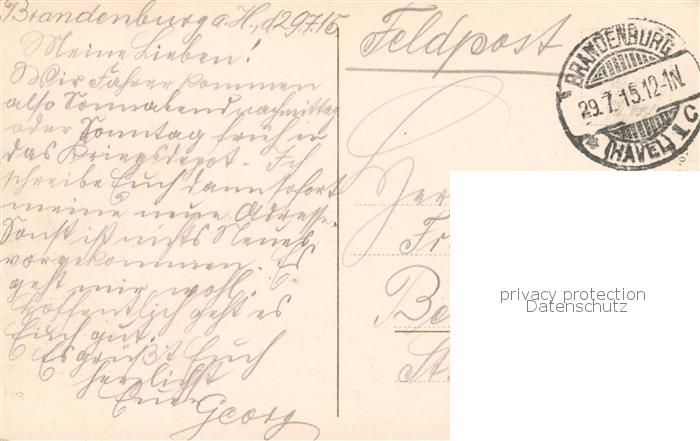 Brandenburg a. H., d 29.7.15
Meine Lieben!
Wir Fahrer kommen
also Sonnabend nachmittag
oder Sonntag früh in
das Kriegsdepot. Ich
schreibe Euch dann sofort
meine neue Adresse.
Sonst ist nichts Neues
vorgekommen. Es
geht mir wohl.
Hoffentlich geht es
Euch gut.
Es grüßt Euch
herzlichst
Euer
Georg
Feldpost
BRANDENBURG
29.7.15.12-1N
(HAVEL) 1 C
Herr
Fr
Be
St
privacy protection
Datenschutz